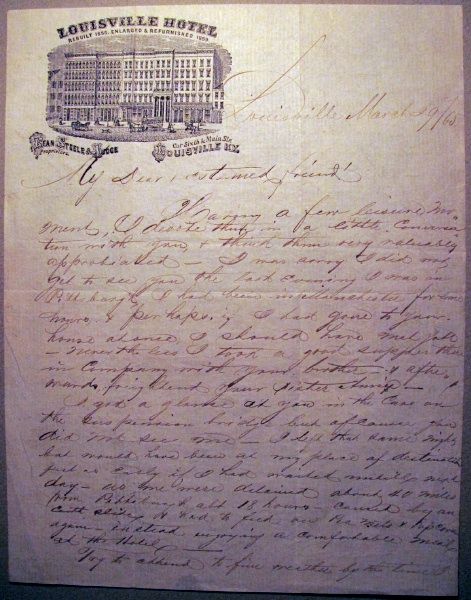 LOUISVILLE HOTEL
REBUILT 1856, ENLARGED & REFURNISHED 1859
KEAN STEELE & JUDGE
Proprietors.
Cor Sixth & Main Sts
LOUISVILLE KY.
Louisville March 29/60
My Dear & esteemed friend!
Having a few leisure Mo-
ments, I devote them in a little Conversa-
tion with you & think them very valuably
I was sorry I did not
get to see you the last evening I was in
Pittsburgh I had been in Manchester for some
hours. & perhaps, if I had gone to your
house alone I should have met you
– Nevertheless I took a good supper there
in Company with your brother – & after-
wards your Sister Annie –
I got a glance at you in the Cars on
the suspension bridge but of course you
did not see me – I left that same night
but would have been at my place of destination
just as early if I had waited until next
day – as we were detained about 40 miles
from Pittsburg & abt 18 hours – caused by an
earth slide & had to feed on & 
again – instead enjoying a comfortable meal
at the Hotel –
Try to attend to fine weather by the time I